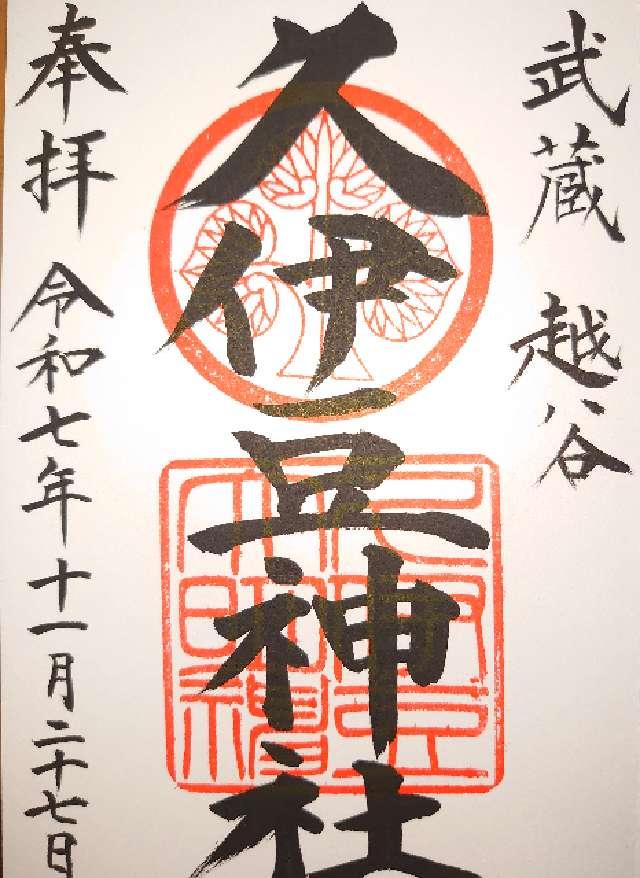 武蔵 越谷
久伊豆神社
奉拝 令和七年十一月二十七日